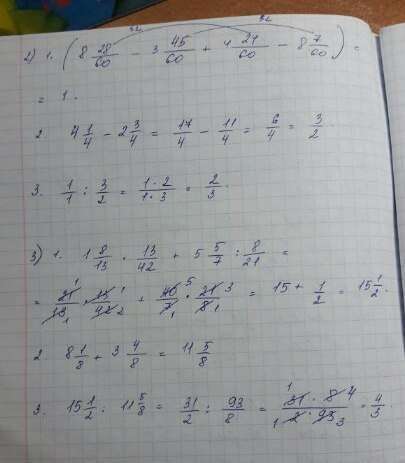 32 32
2) 1. (8 28/60 - 3 45/60 + 4 24/60 - 8 7/60) =
= 1.
2 4 1/4 - 2 3/4 = 17/4 - 11/4 = 6/4 = 3/2.
3. 1/1 : 3/2 = 1·2/1·3 = 2/3.
3) 1. 1 8/13 · 13/42 + 5 5/7 : 8/21 =
= 21 1/13 1 · 13 1/42 2 + 40 5/7 1 · 21 3/8 1 = 15 + 1/2 = 15 1/2.
2 8 1/8 + 3 4/8 = 11 5/8
3. 15 1/2 : 11 5/8 = 31/2 : 93/8 = 1 31 · 8 4/1 2 · 93 3 = 4/3